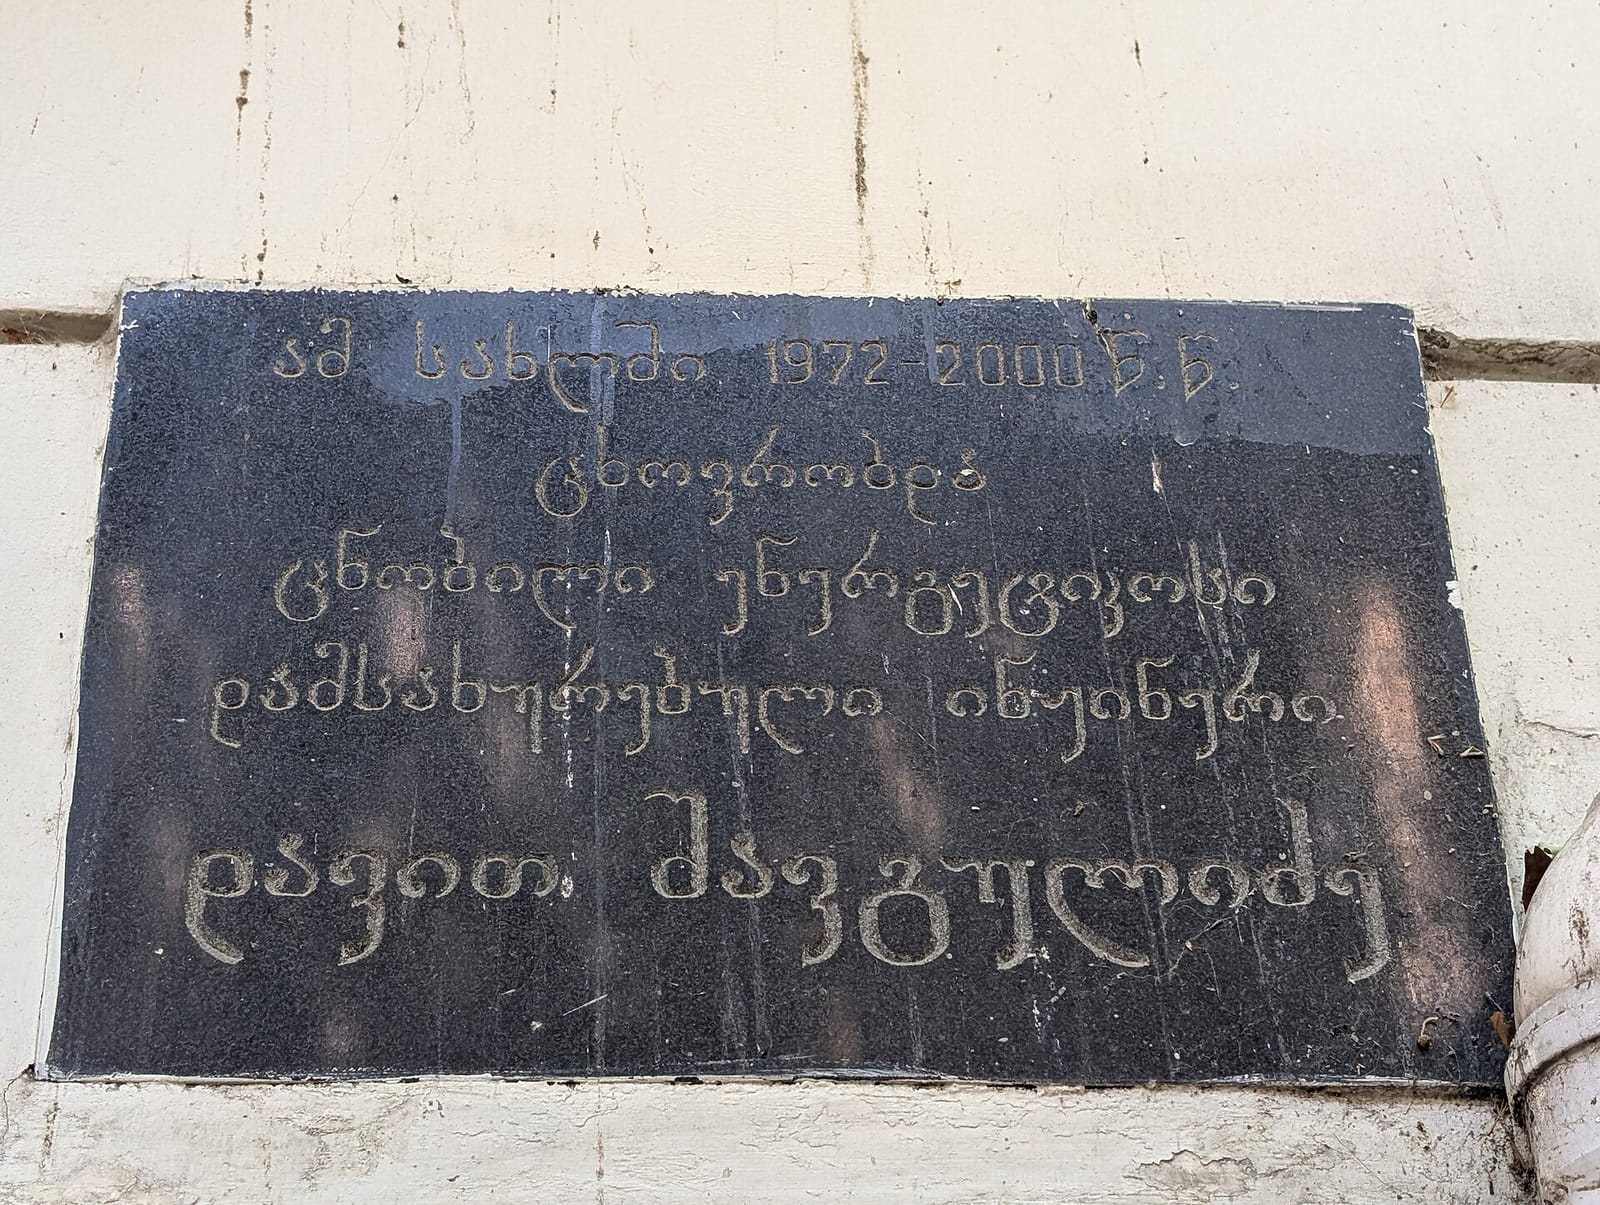 ამ სახლში 1972-2000 წ.წ.
ცხოვრობდა
ცნობილი ენერგეტიკოსი
დამსახურებული ინჟინერი
დავით შავგულიძე